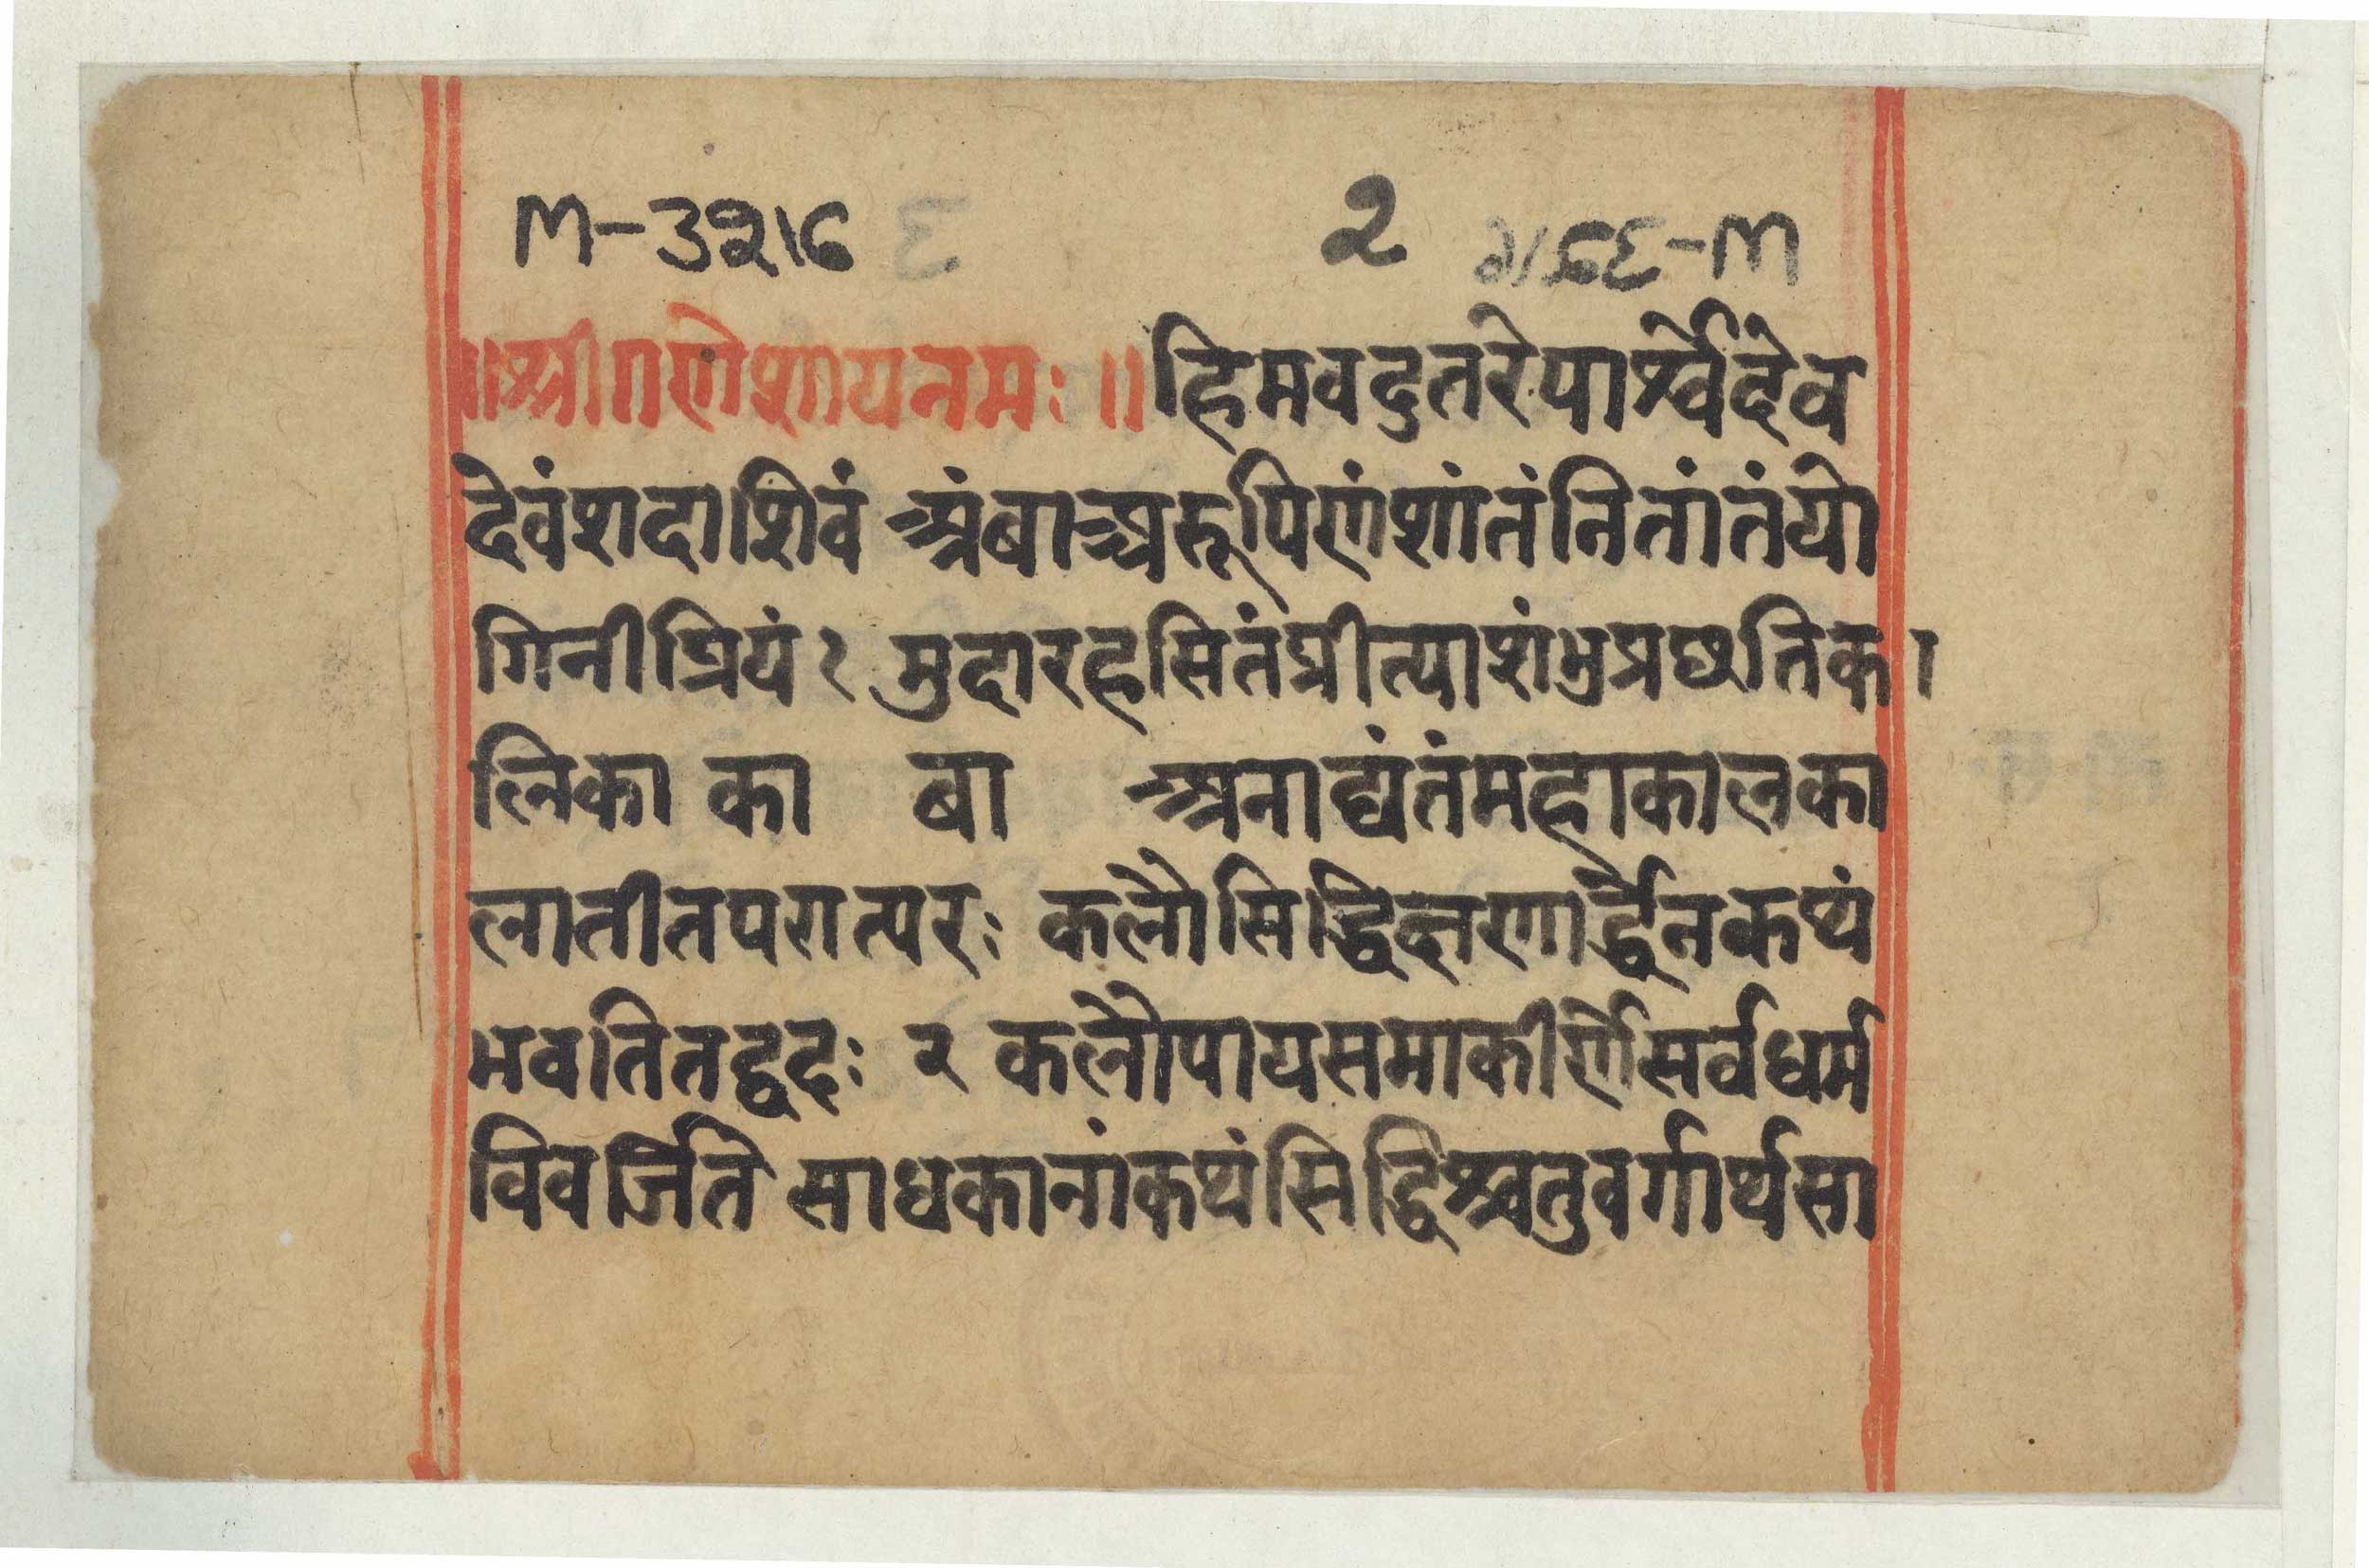 M-3216 2
॥श्रीगणेशायनमः॥हिमवदुतरेपार्श्वेदेव
देवंशदाशिवं अंबाच्चरूपिणंशांतंनितांतंयो
गिनीप्रियं १ मुदारहसितंप्रीत्याशंभुप्रछतिका
लिका का बा अनाद्यंतंमहाकालका
लातीतपरात्परः कलौसिद्धिक्षणार्द्धेनकथं
भवतितद्वदः २ कलौपापसमाकीर्णेसर्वधर्म
विवर्जिते साधकानांकथंसिद्धिश्चतुवर्गार्थसा